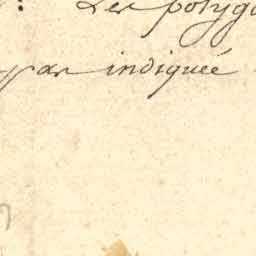 : Les polyg
par indiquée